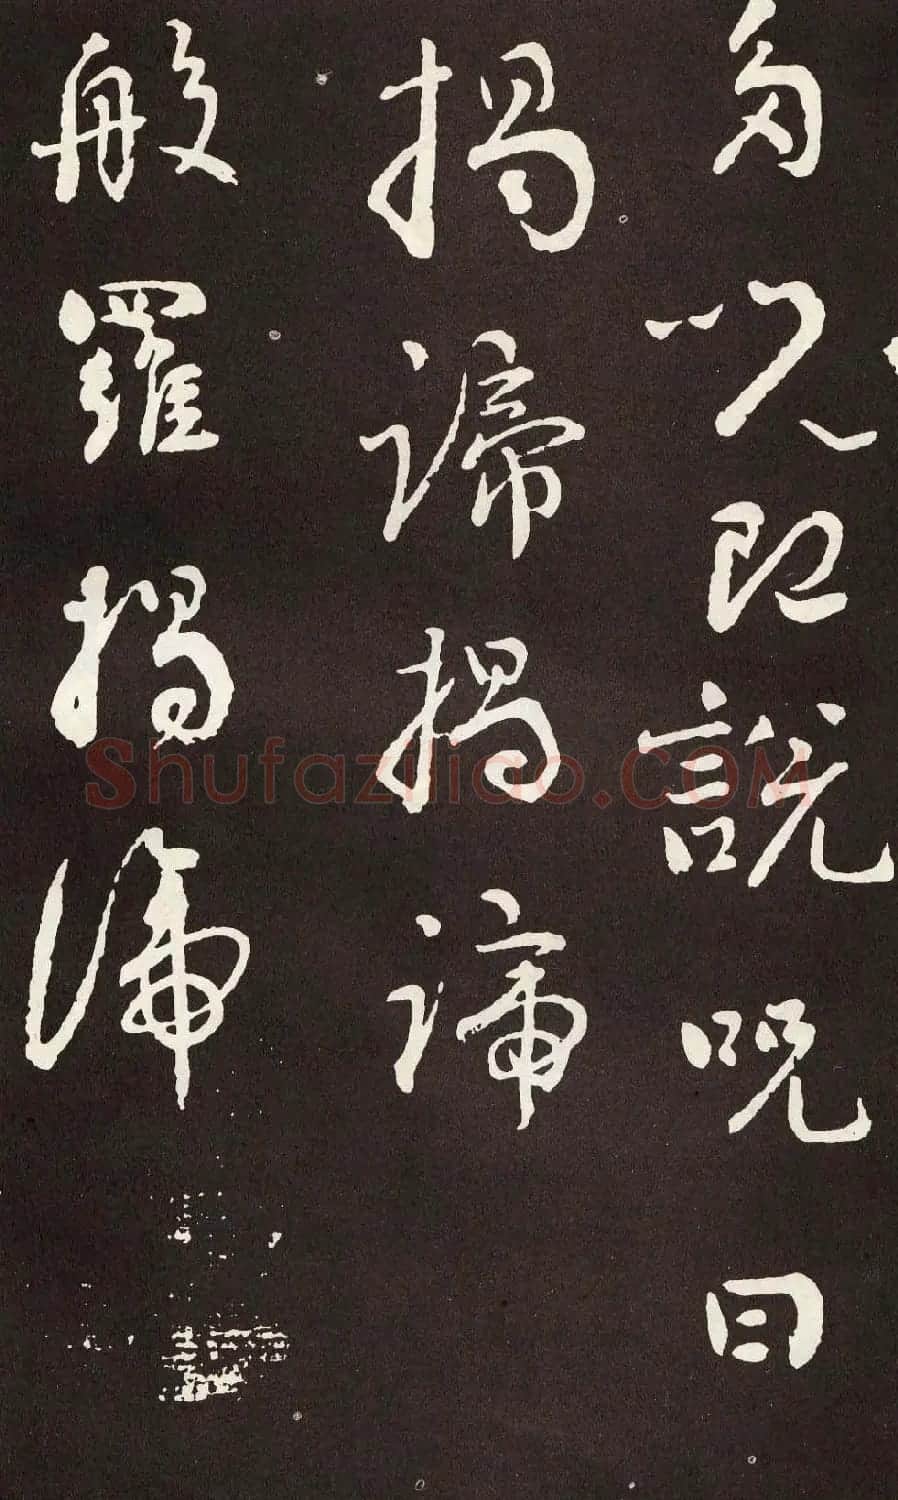 多咒即說咒曰
揭諦揭諦
般羅揭諦
Shufaziliao.COM